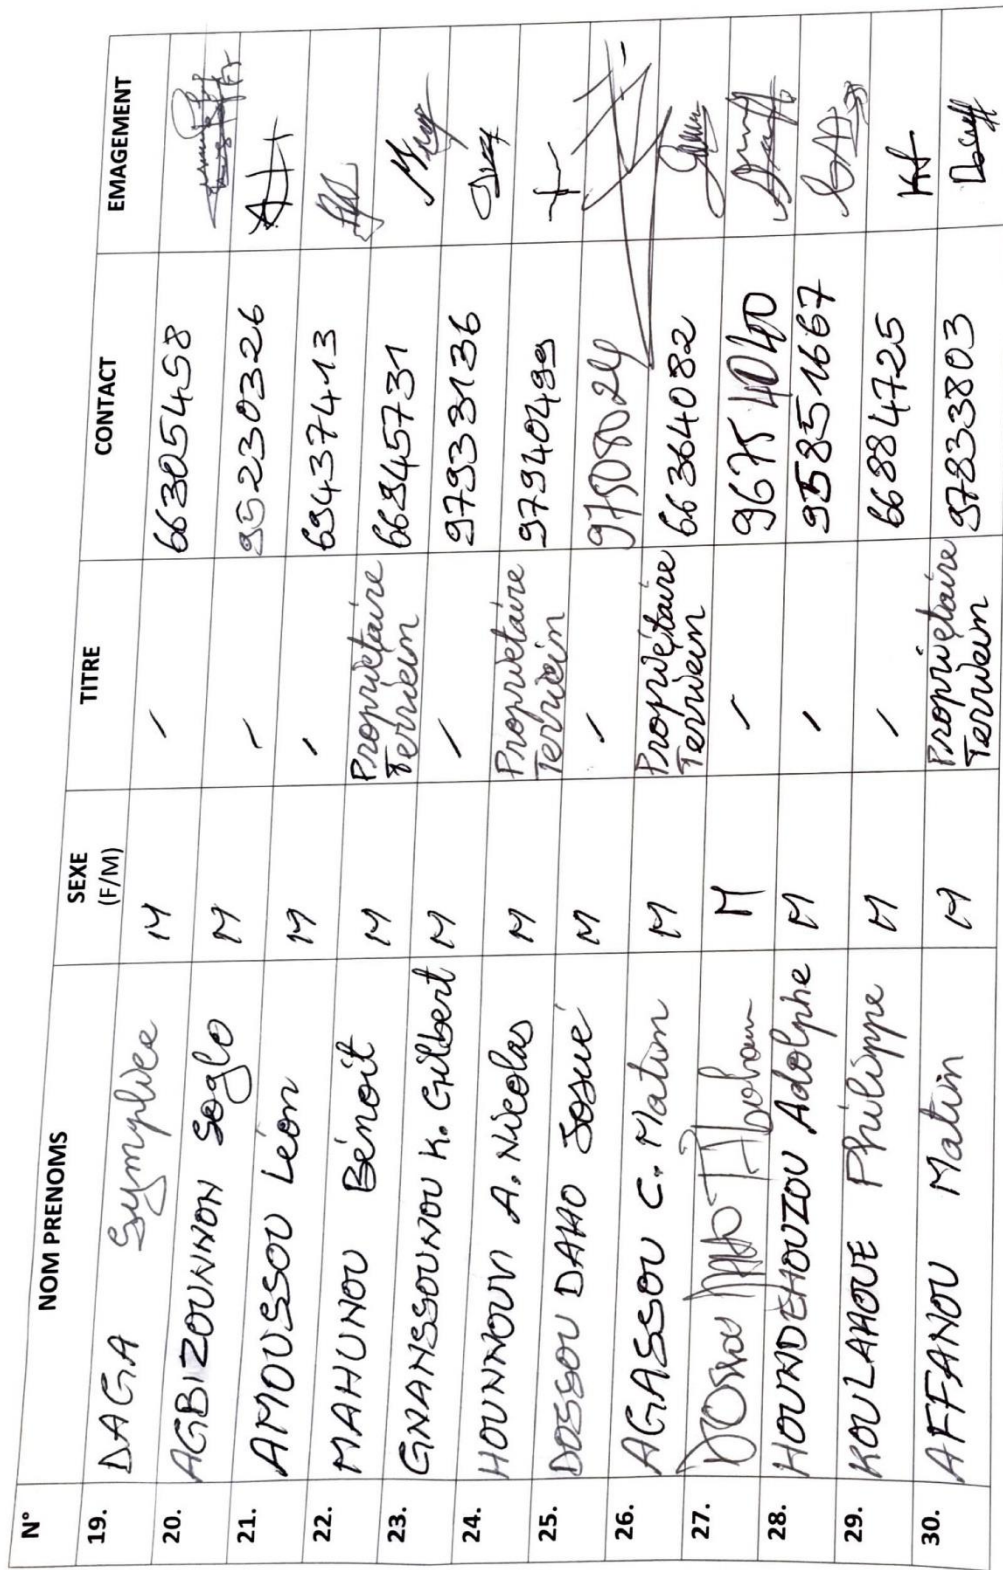 N° NOM PRENOMS SEXE (F/M) TITRE CONTACT EMAGEMENT
19. DAGA Symplice M - 66305458
20. AGBIZOUNNON Soglo M - 95230326
21. AMOUSSOU Léon M - 69437413
22. MAHUNOU Bénoit M Propriétaire Terrien 66945731
23. GNANSSOUNOU K. Gilbert M - 97933136
24. HOUNNOUVI A. Nicolas M Propriétaire Terrien 97940499
25. DOSSOU DAHO Josué M - 97508024
26. AGASSOU C. Matin M Propriétaire Terrien 66364082
27. DOSSOU DAHO M - 96754040
28. HOUNDEHOUZOU Adolphe M - 95851667
29. KOULAHOUE Philippe M - 66884725
30. AFFANOU Matin M Propriétaire Terrien 97833803